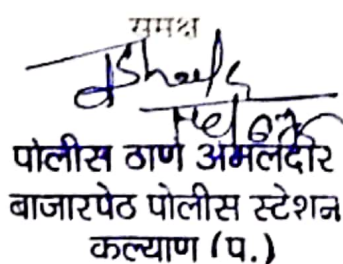 समक्ष
पोलीस ठाणे अमलदार
बाजारपेठ पोलीस स्टेशन
कल्याण (प.)